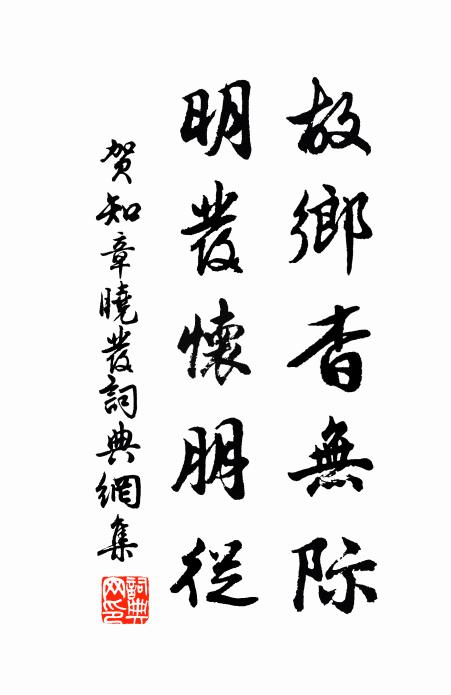 故鄉杳無际
明發懷朋從
贺知章曉發詞典網集
詞典网印